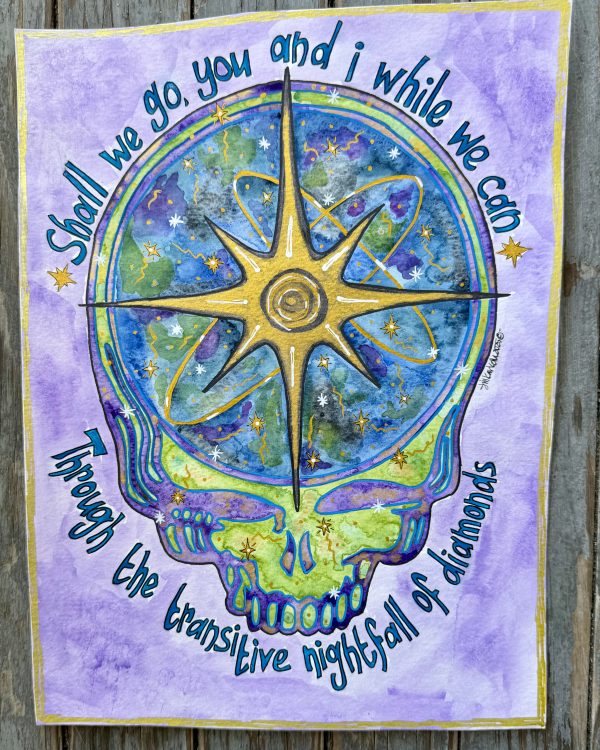 Shall we go, you and i while we can
Through the transitive nightfall of diamonds